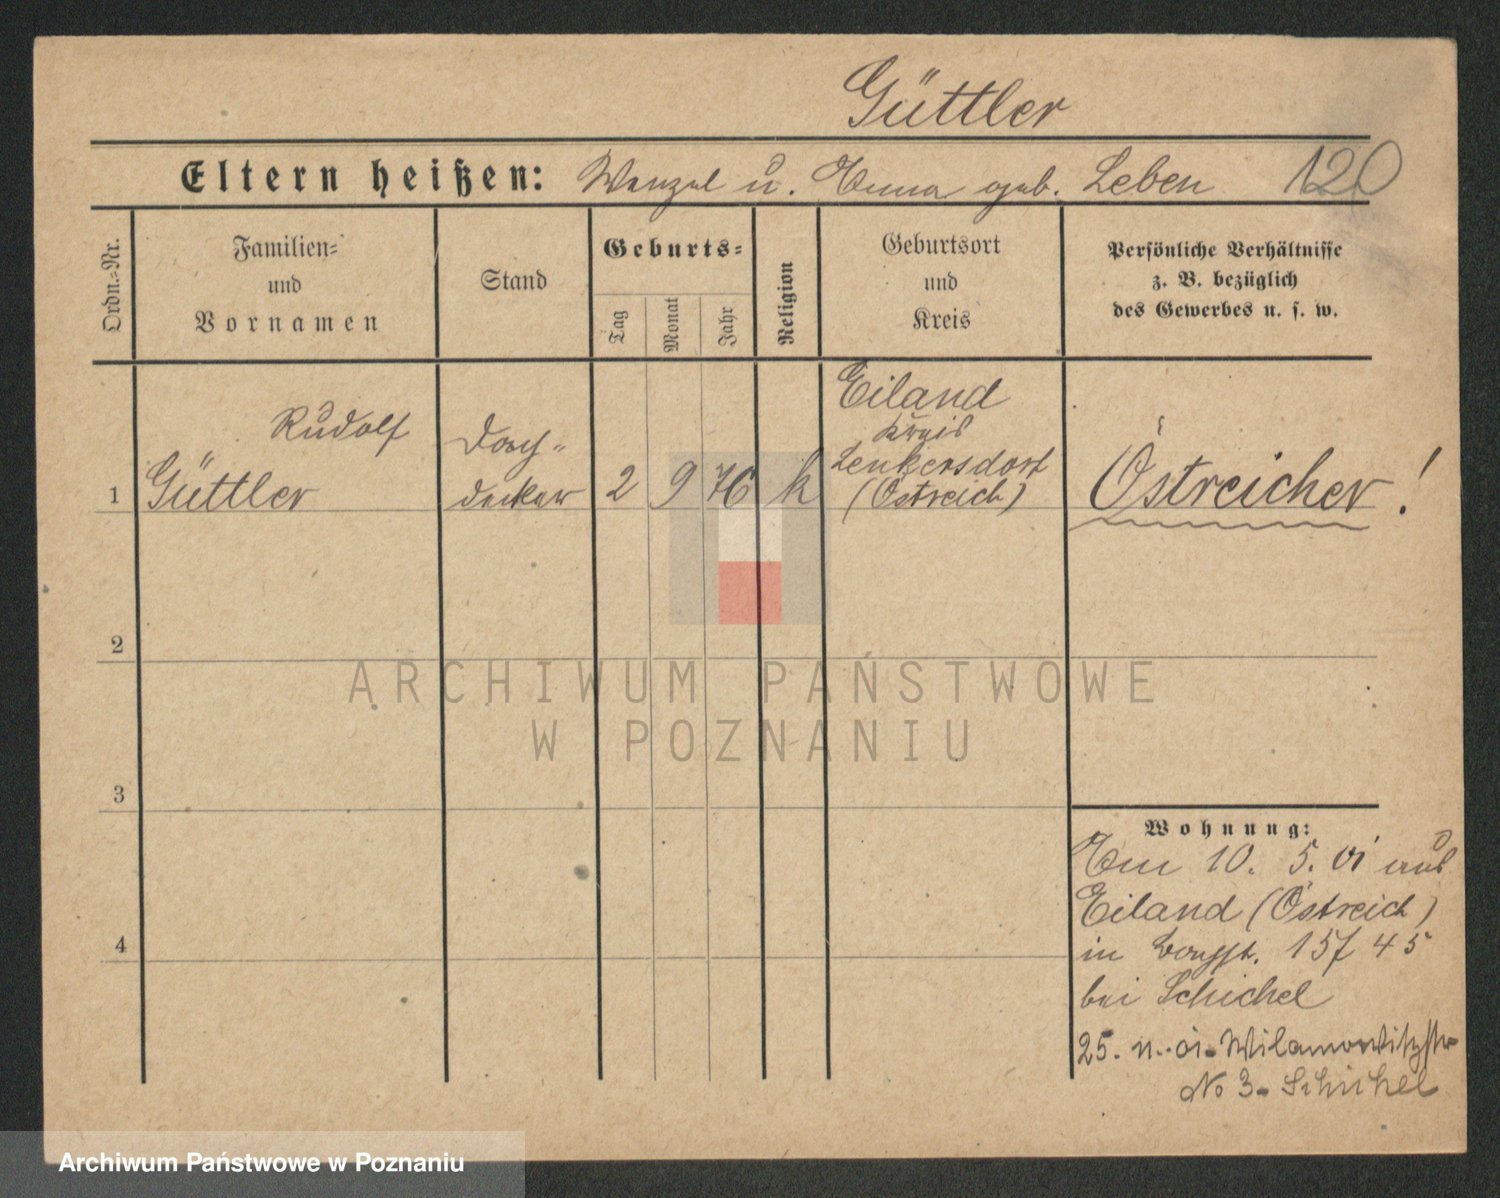 Güttler
Eltern heißen: Wenzel u. Anna geb. Leben 120
Ordn.=Nr.
Familien=
und
Vornamen
Stand
Geburts=
Tag
Monat
Jahr
Religion
Geburtsort
und
Kreis
Persönliche Verhältnisse
z. B. bezüglich
des Gewerbes u. s. w.
1
Rudolf
Güttler
Dach=
decker
2
9
76
k
Eiland
Kreis
Lenkersdorf
(Östreich)
Östreicher!
2
3
4
Wohnung:
Am 10. 5. 01 aus
Eiland (Östreich)
in 157 45
bei Schichel
25. 11. 01. Wilamowitzstr
No 3. Schichel
ARCHIWUM PAŃSTWOWE
W POZNANIU
Archiwum Państwowe w Poznaniu